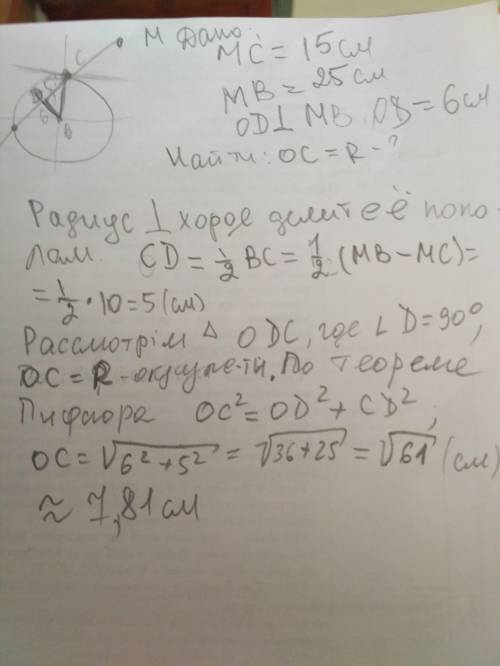 M Дано:
MC = 15 см
MB = 25 см
OD ⊥ MB. OD = 6 см
Найти: OC = R - ?
C
Радиус ⊥ хорде делит её попо-
лам. CD = 1/2 BC = 1/2 (MB - MC) =
= 1/2 • 10 = 5 (см)
Рассмотрім △ ODC, где ∠D = 90°,
OC = R - окружности. По теореме
Пифагора OC² = OD² + CD²;
OC = √6² + 5² = √36 + 25 = √61 (см)
≈ 7,81 см